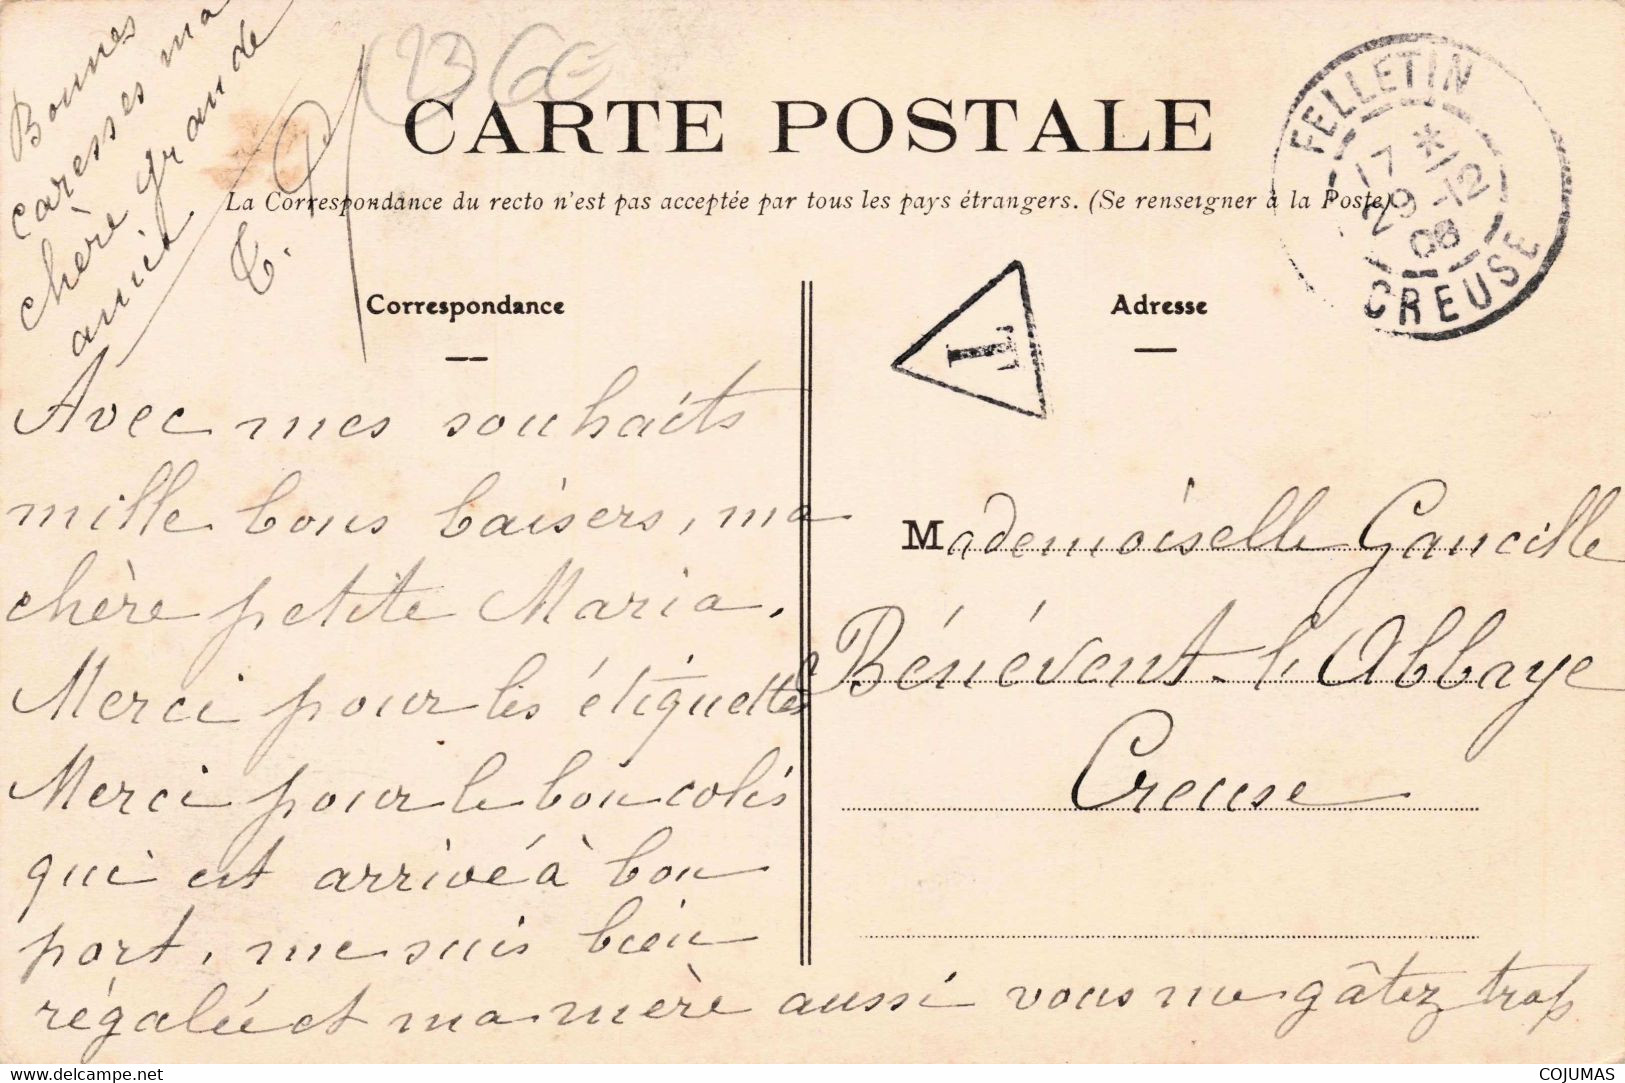 Bonnes
caresses ma
chère grande
amie
T.
(23)
CARTE POSTALE
La Correspondance du recto n'est pas acceptée par tous les pays étrangers. (Se renseigner à la Poste)
FELLETIN
17 * 12
29 -12
08
CREUSE
T
Correspondance
Adresse
Avec mes souhaits
mille bons baisers, ma
chère petite Maria.
Merci pour les étiquettes
Merci pour le bon colis
qui est arrivé à bon
port, me suis bien
régalée et ma mère aussi vous me gâtez trop
Mademoiselle Gaucille
Bénévent-l'Abbaye
Creuse
https://www.delcampe.net
COJUMAS